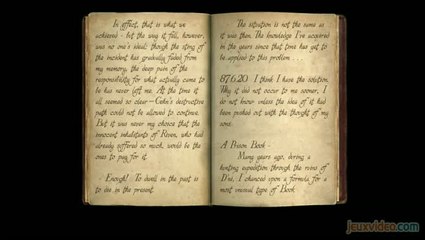 In effect, that is what we
achieved - but the way it fell, however,
was no one's ideal; though the sting of
the incident has gradually faded from
my memory, the deep pain of the
responsibility for what actually came to
be has never left me. At the time it
all seemed so clear — Gehn's destructive
path could not be allowed to continue.
But it was never my choice that the
innocent inhabitants of Riven, who had
already suffered so much, would be the
ones to pay for it.
- Enough! To dwell in the past is
to die in the present.
The situation is not the same as
it was then. The knowledge I've acquired
in the years since that time has yet to
be applied to this problem . . .
87.6.20 I think I have the solution.
Why it did not occur to me sooner, I
do not know unless the idea of it had
been pushed out with the thought of my
sons.
A Prison Book -
Many years ago, during a
hunting expedition through the ruins of
D'ni, I chanced upon a formula for a
most unusual type of Book
jeuxvideo.com